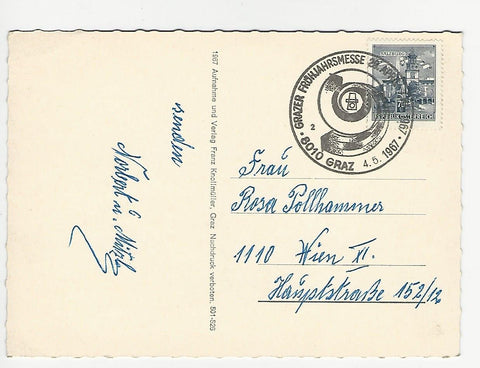 senden
Norbert u.
1967 Aufnahme und Verlag Franz Knollmüller, Graz. Nachdruck verboten. 501-525
GRAZER FRÜHJAHRSMESSE
2
8010 GRAZ 4.5.1967
SALZBURG
REPUBLIK ÖSTERREICH
Frau
Rosa Pollhammer
1110 Wien XI.
Hauptstraße 152/12